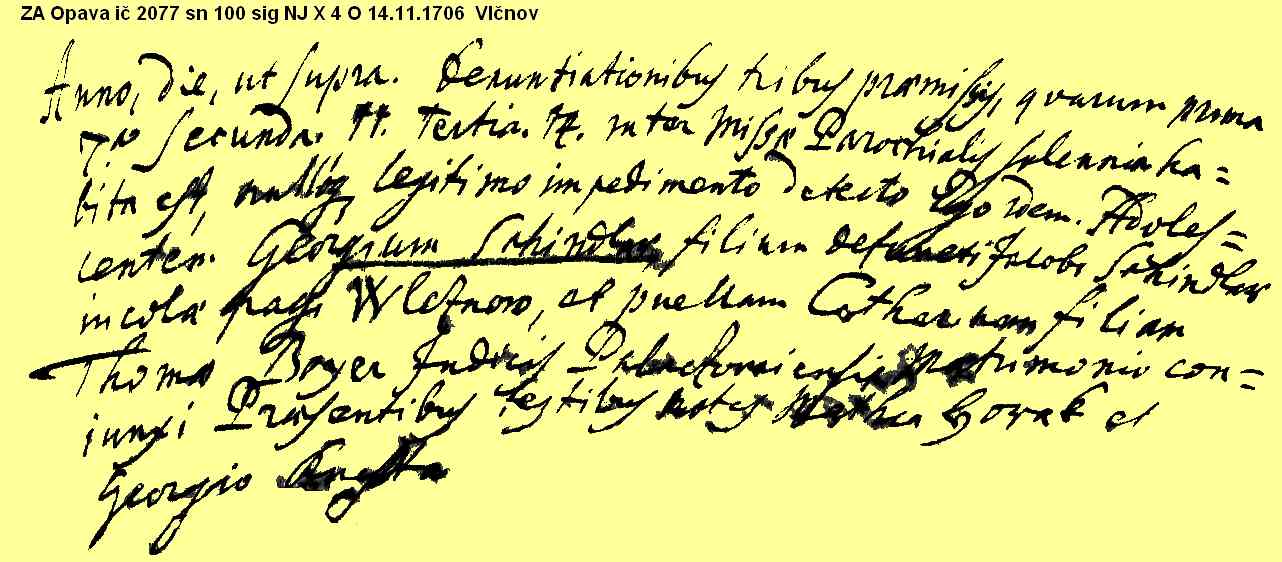 ZA Opava ič 2077 sn 100 sig NJ X 4 O 14.11.1706 Vlčnov
Anno, die, ut supra. Denuntiationibus tribus præmissis, quarum prima
7ma Secunda. 11. Tertia. 14. inter Missæ Parochialis solennia ha=
bita est, nulloq legitimo impedimento detecto Ego idem. Adoles=
centem. Georgium Schindler, filium defuncti Jacobi Schindler
incolæ pagi Wletznow, et puellam Catharinam filiam
Thomæ Boyer Judicis Matrimonio con=
junxi Præsentibus testibus notis Horak et
Georgio